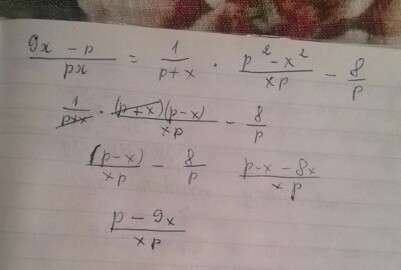 (9x - p)/(px) = 1/(p+x) · (p² - x²)/(xp) - 8/p
1/(p+x) · ((p+x)(p-x))/(xp) - 8/p
(p-x)/(xp) - 8/p (p-x-8x)/(xp)
(p - 9x)/(xp)